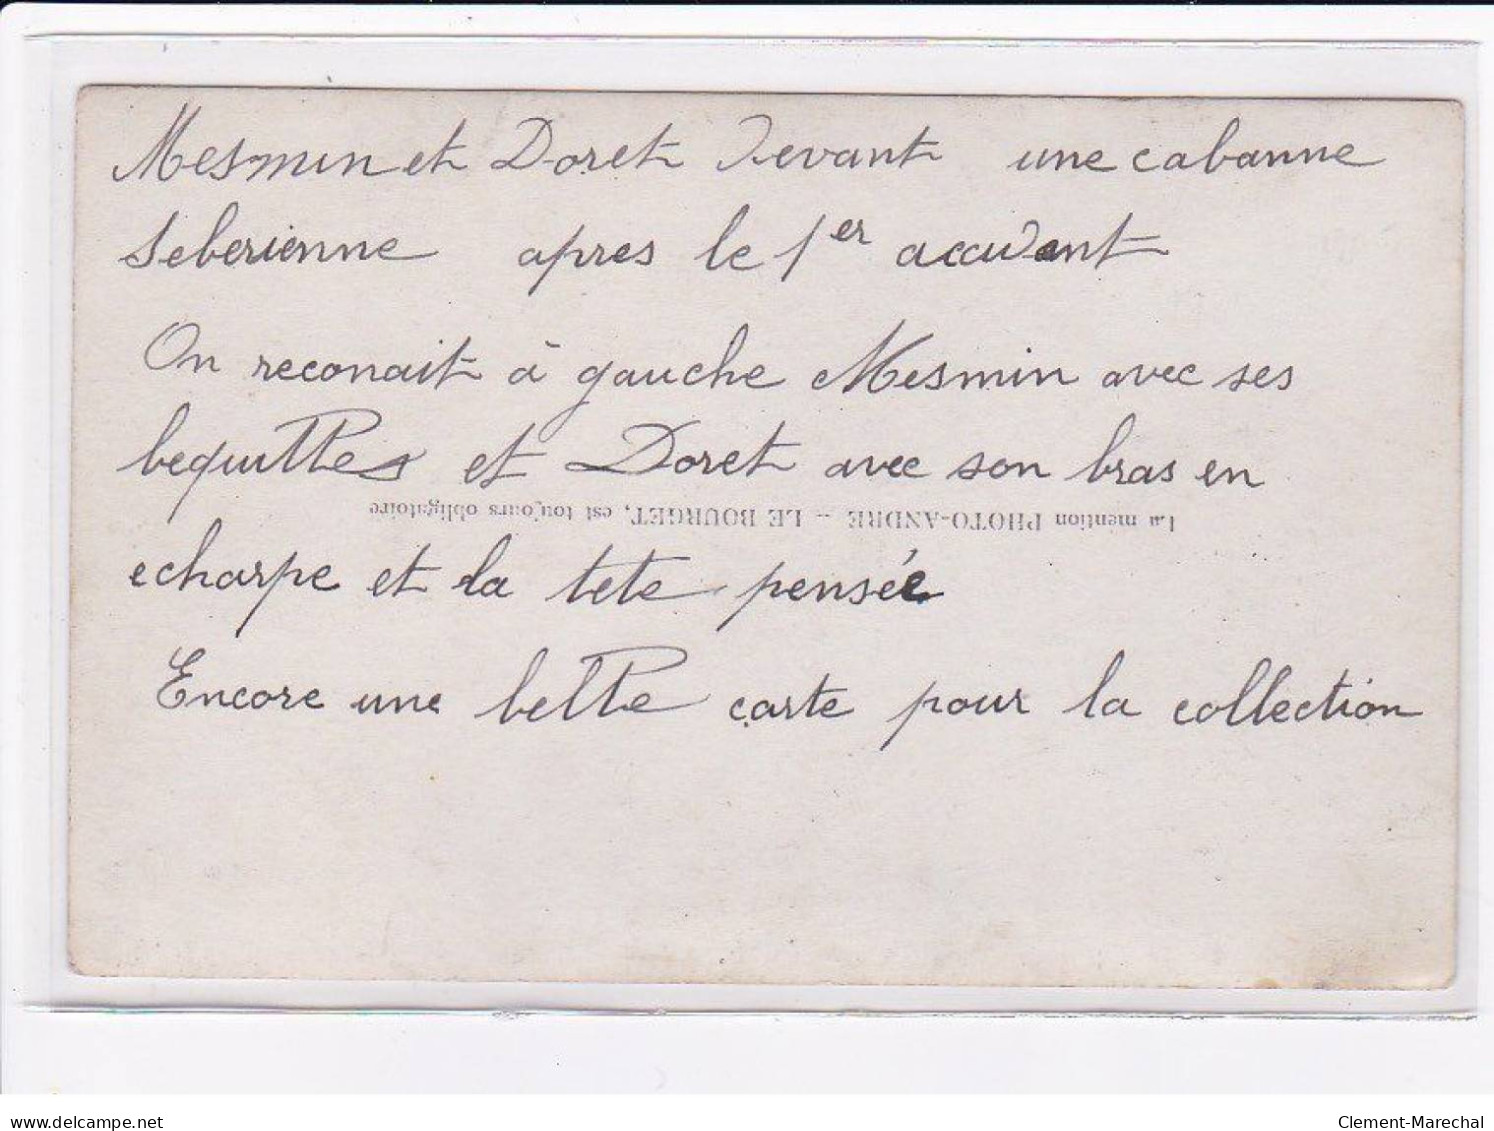 Mesmin et Doret devant une cabanne
Seberienne apres le 1er accident
On reconait à gauche Mesmin avec ses
bequilles et Doret avec son bras en
La mention PHOTO-ANDRE – LE BOURGET, est toujours obligatoire
echarpe et la tete pensée
Encore une belle carte pour la collection
www.delcampe.net
Clement-Marechal